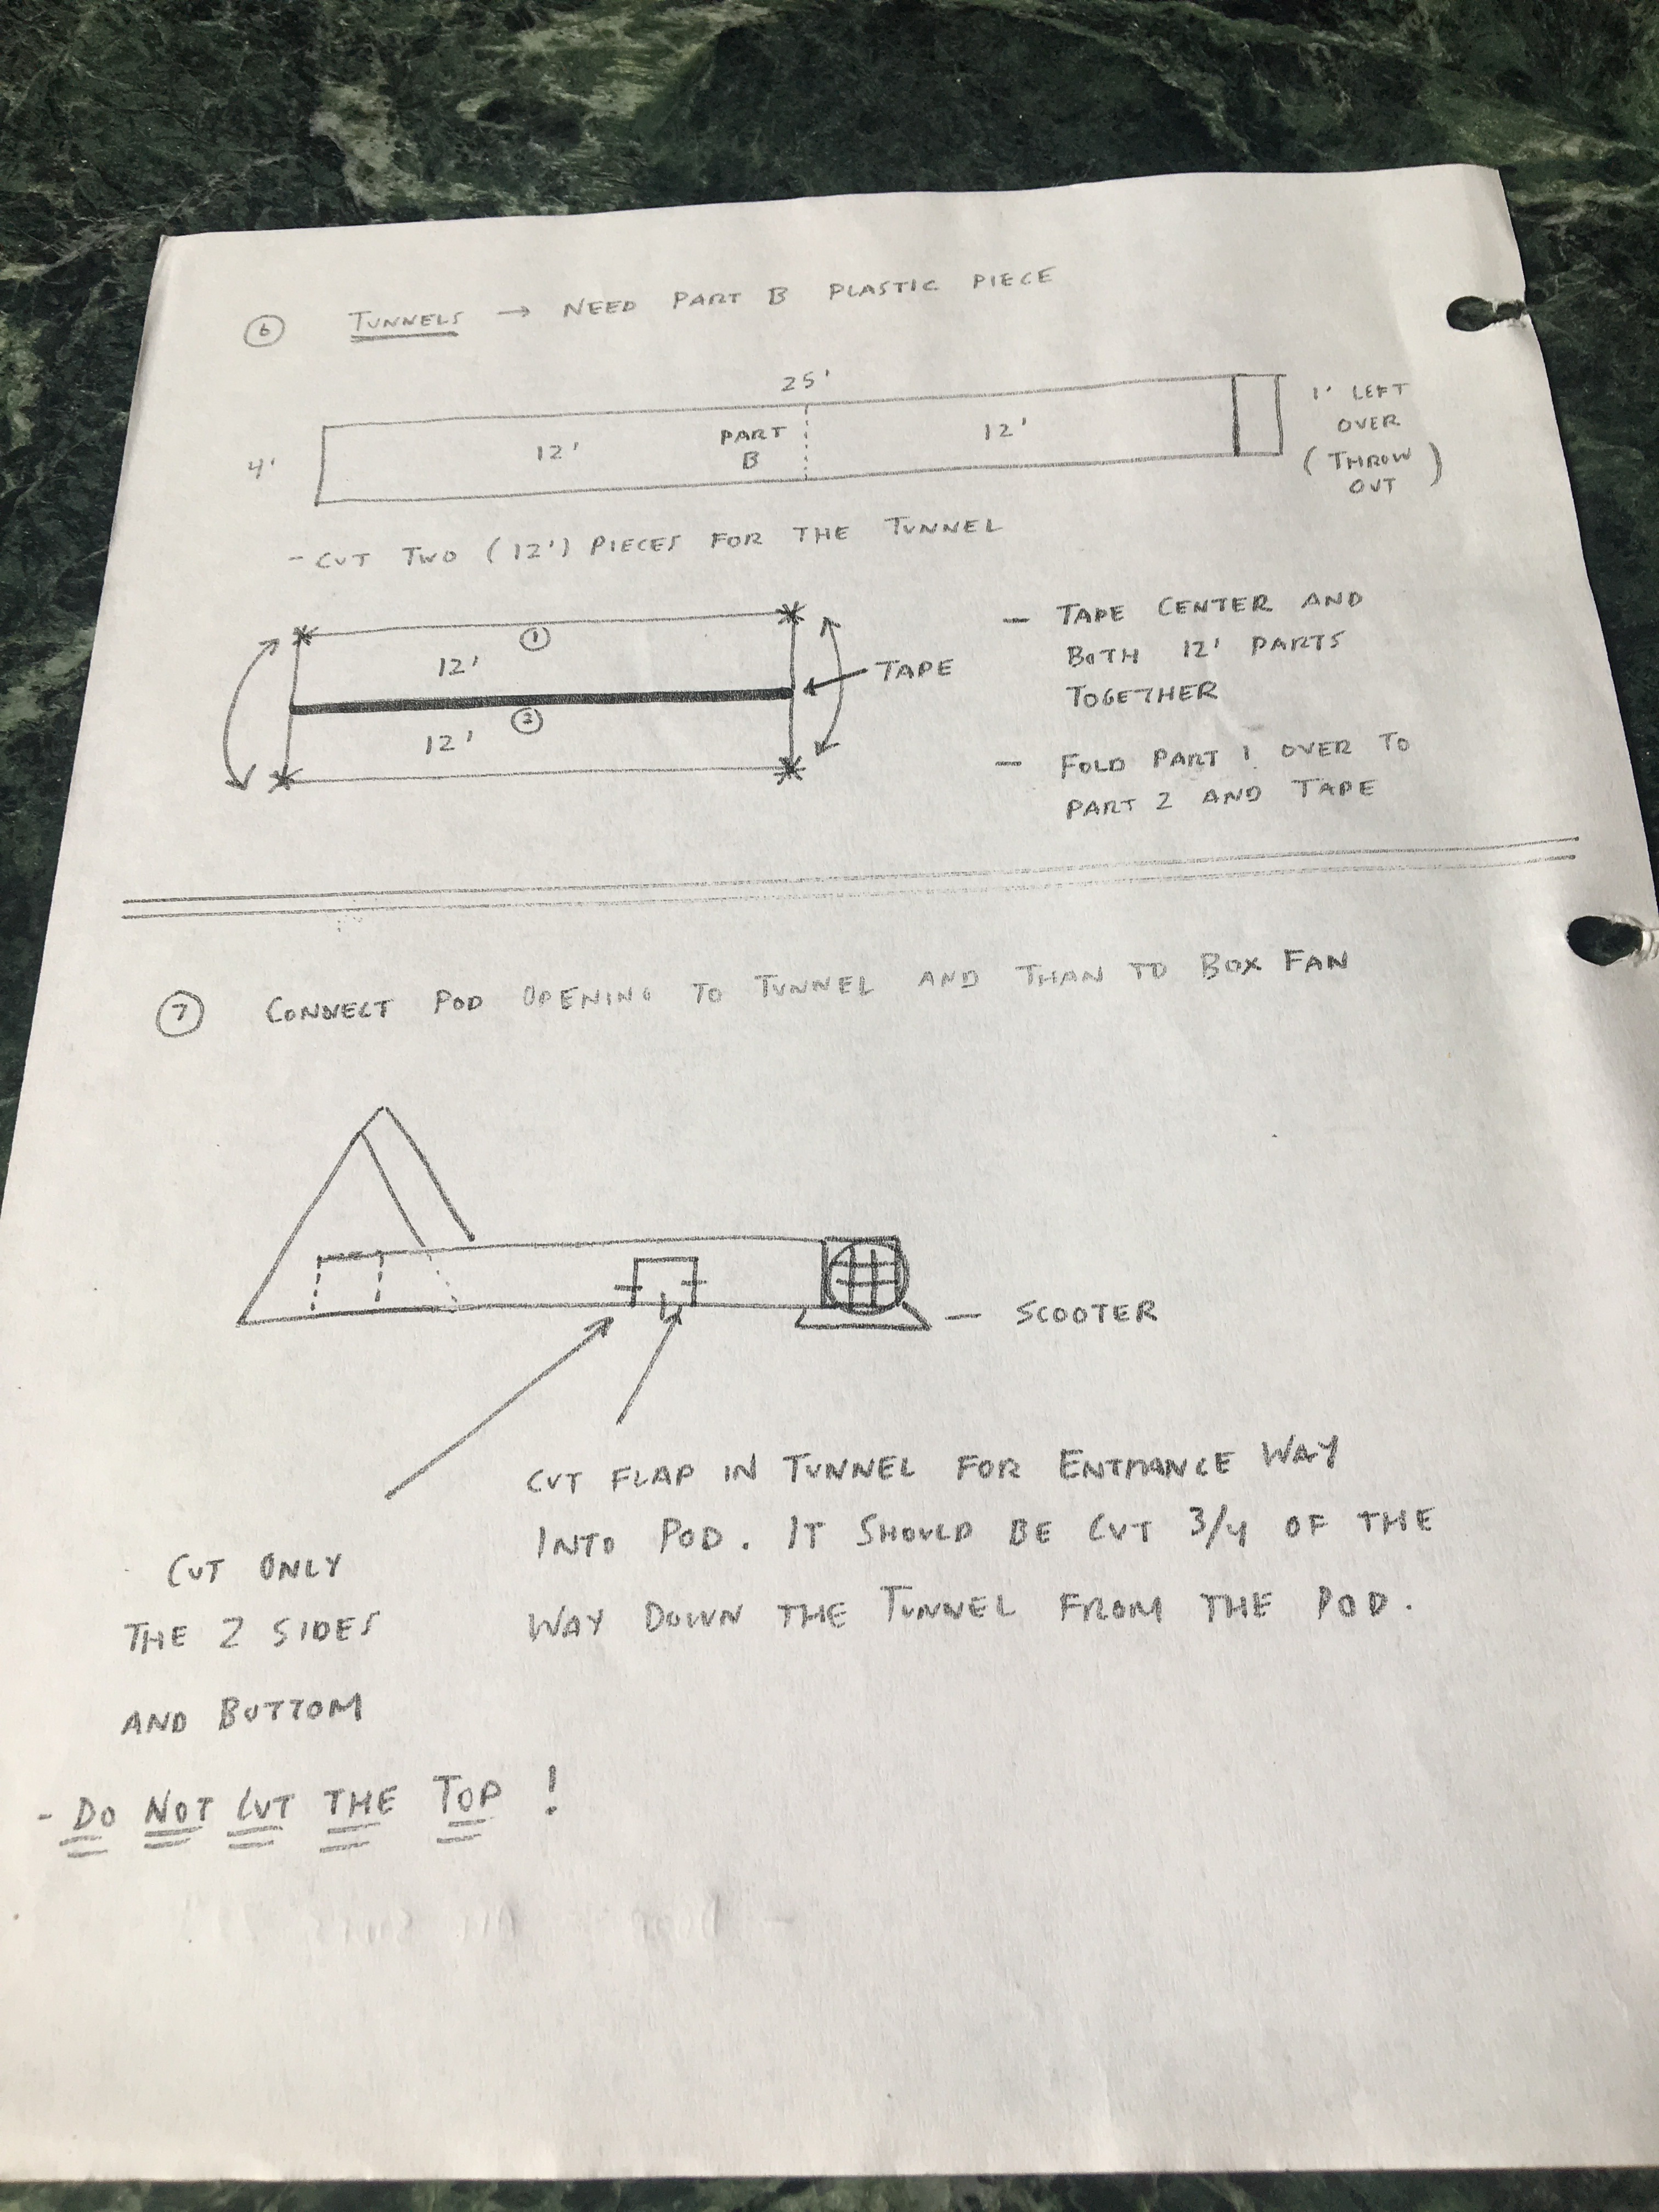 6 TUNNELS → NEED PART B PLASTIC PIECE
25'
4' 12' PART B 12'
1' LEFT
OVER
(THROW
OUT)
- CUT TWO (12') PIECES FOR THE TUNNEL
1
12'
2
12'
TAPE
- TAPE CENTER AND
BOTH 12' PARTS
TOGETHER
- FOLD PART 1 OVER TO
PART 2 AND TAPE
7 CONNECT POD OPENING TO TUNNEL AND THAN TO BOX FAN
- SCOOTER
CUT FLAP IN TUNNEL FOR ENTRANCE WAY
INTO POD. IT SHOULD BE CUT 3/4 OF THE
WAY DOWN THE TUNNEL FROM THE POD.
CUT ONLY
THE 2 SIDES
AND BOTTOM
- DO NOT CUT THE TOP!